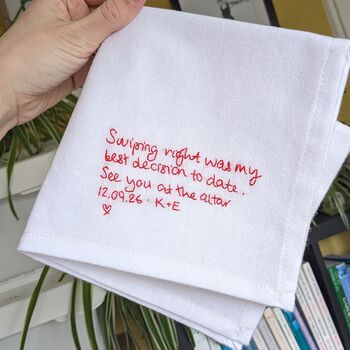 Swiping right was my
best decision to date.
See you at the altar
12.09.26 · K+E
♡